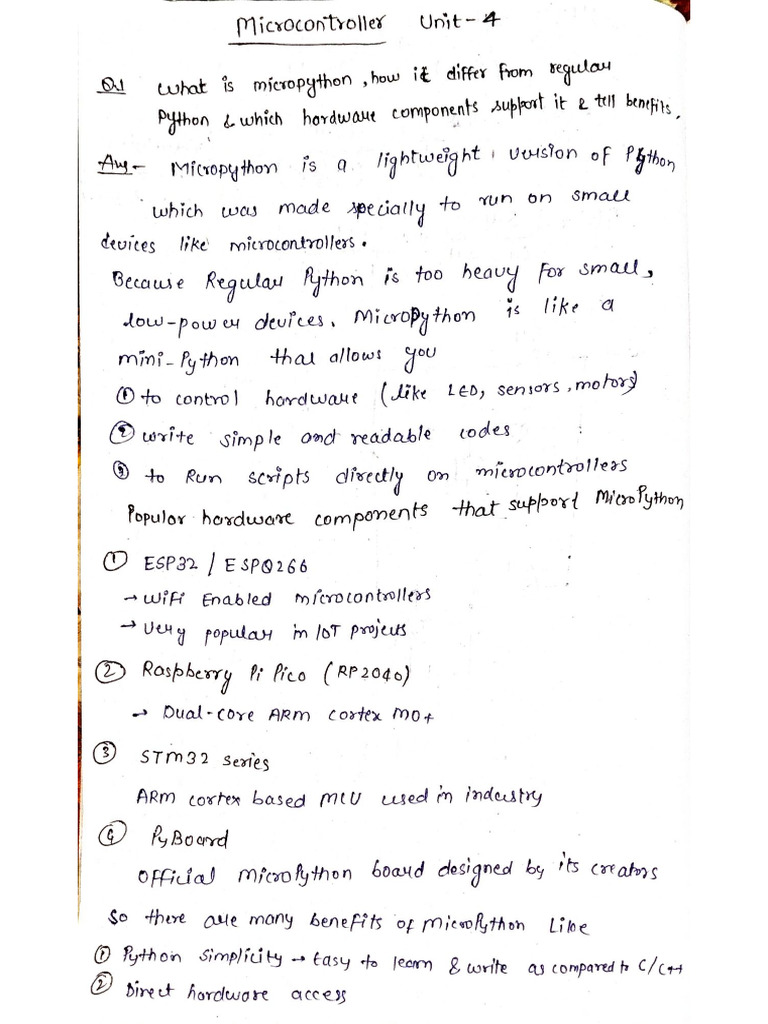 Microcontroller Unit-4
Q.1 What is micropython, how it differ from regular
Python & which hardware components support it & tell benefits.
Ans- Micropython is a lightweight version of Python
which was made specially to run on small
devices like microcontrollers.
Because Regular Python is too heavy for small,
low-power devices. MicroPython is like a
mini-Python that allows you
① to control hardware (like LED, sensors, motors)
② write simple and readable codes
③ to Run scripts directly on microcontrollers
Popular hardware components that support MicroPython
① ESP32 / ESP8266
→ WiFi Enabled microcontrollers
→ Very popular in IoT projects
② Raspberry Pi Pico (RP2040)
→ Dual-core ARM cortex M0+
③ STM32 series
ARM cortex based MCU used in industry
④ PyBoard
Official MicroPython board designed by its creators
So there are many benefits of MicroPython Like
① Python simplicity → Easy to learn & write as compared to C/C++
② Direct hardware access